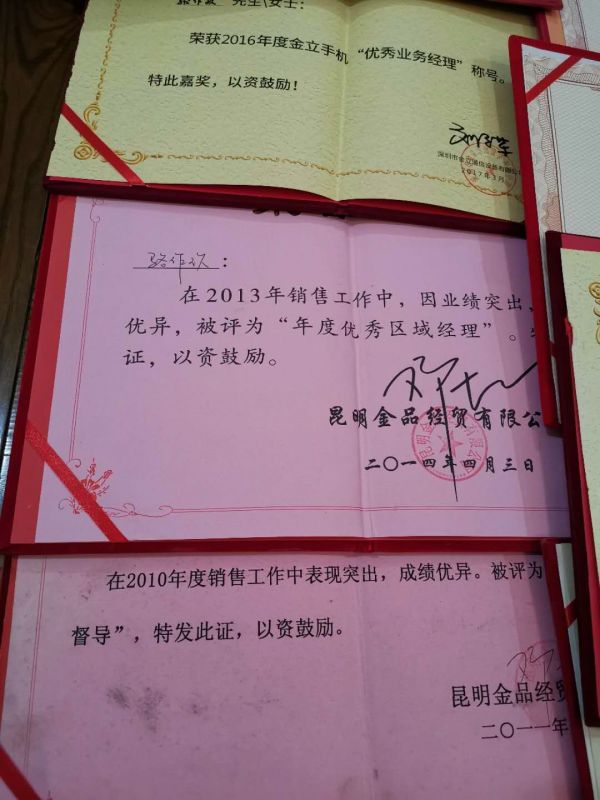 先生\女士：
荣获2016年度金立手机“优秀业务经理”称号。
特此嘉奖，以资鼓励！
深圳市金立通信设备有限公
2017年3月
骆作次：
在2013年销售工作中，因业绩突出、
优异，被评为“年度优秀区域经理”。
证，以资鼓励。
昆明金品经贸有限公
二〇一四年四月三日
在2010年度销售工作中表现突出，成绩优异。被评为
督导”，特发此证，以资鼓励。
昆明金品经贸
二〇一一年